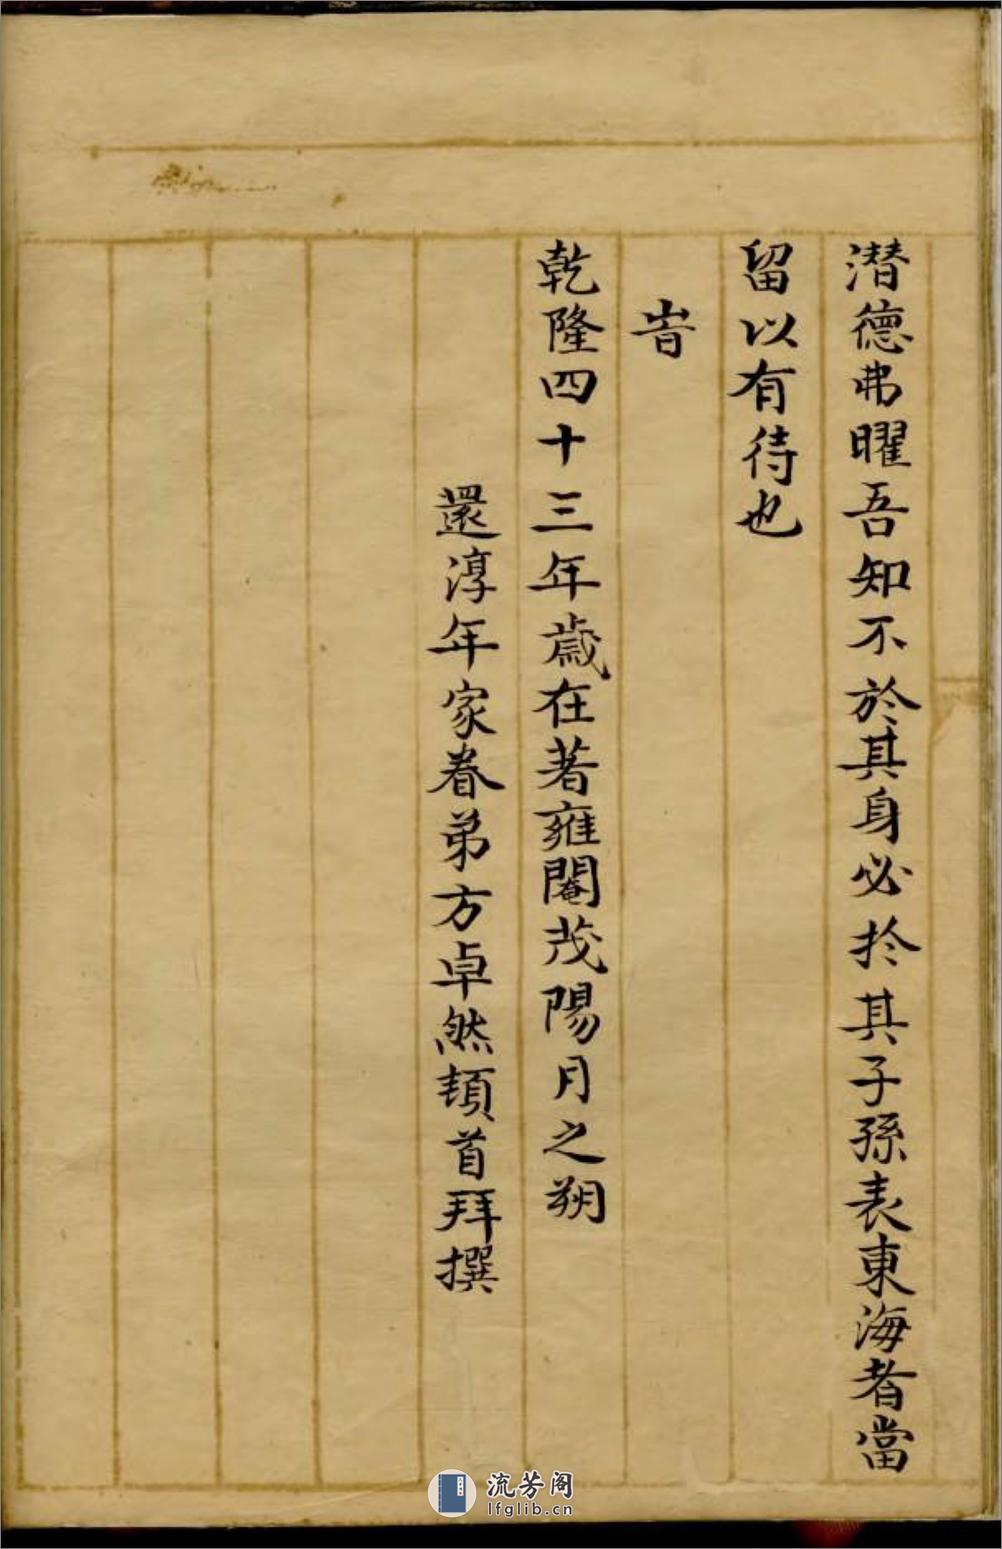 潛德弗曜吾知不於其身必扵其子孫表東海者當
留以有待也
旹
乾隆四十三年歲在著雍閹茂陽月之朔
還淳年家眷弟方卓然頓首拜撰
流芳阁
lfglib.cn